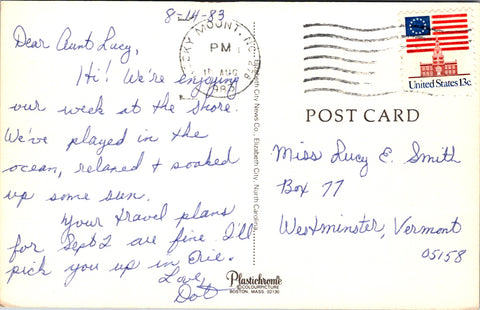 8-14-83
Dear Aunt Lucy,
Hi! We're enjoying
our week at the shore.
We've played in the
ocean, relaxed & soaked
up some sun.
Your travel plans
for Sept 2 are fine. I'll
pick you up in Erie.
Love,
Dot
ROCKY MOUNT, NC 278
PM
AUG
United States 13c
POST CARD
Miss Lucy E. Smith
Box 77
Westminster, Vermont
05158
City News Co., Elizabeth City, North Carolina
Plastichrome
©COLOURPICTURE
BOSTON, MASS. 02130